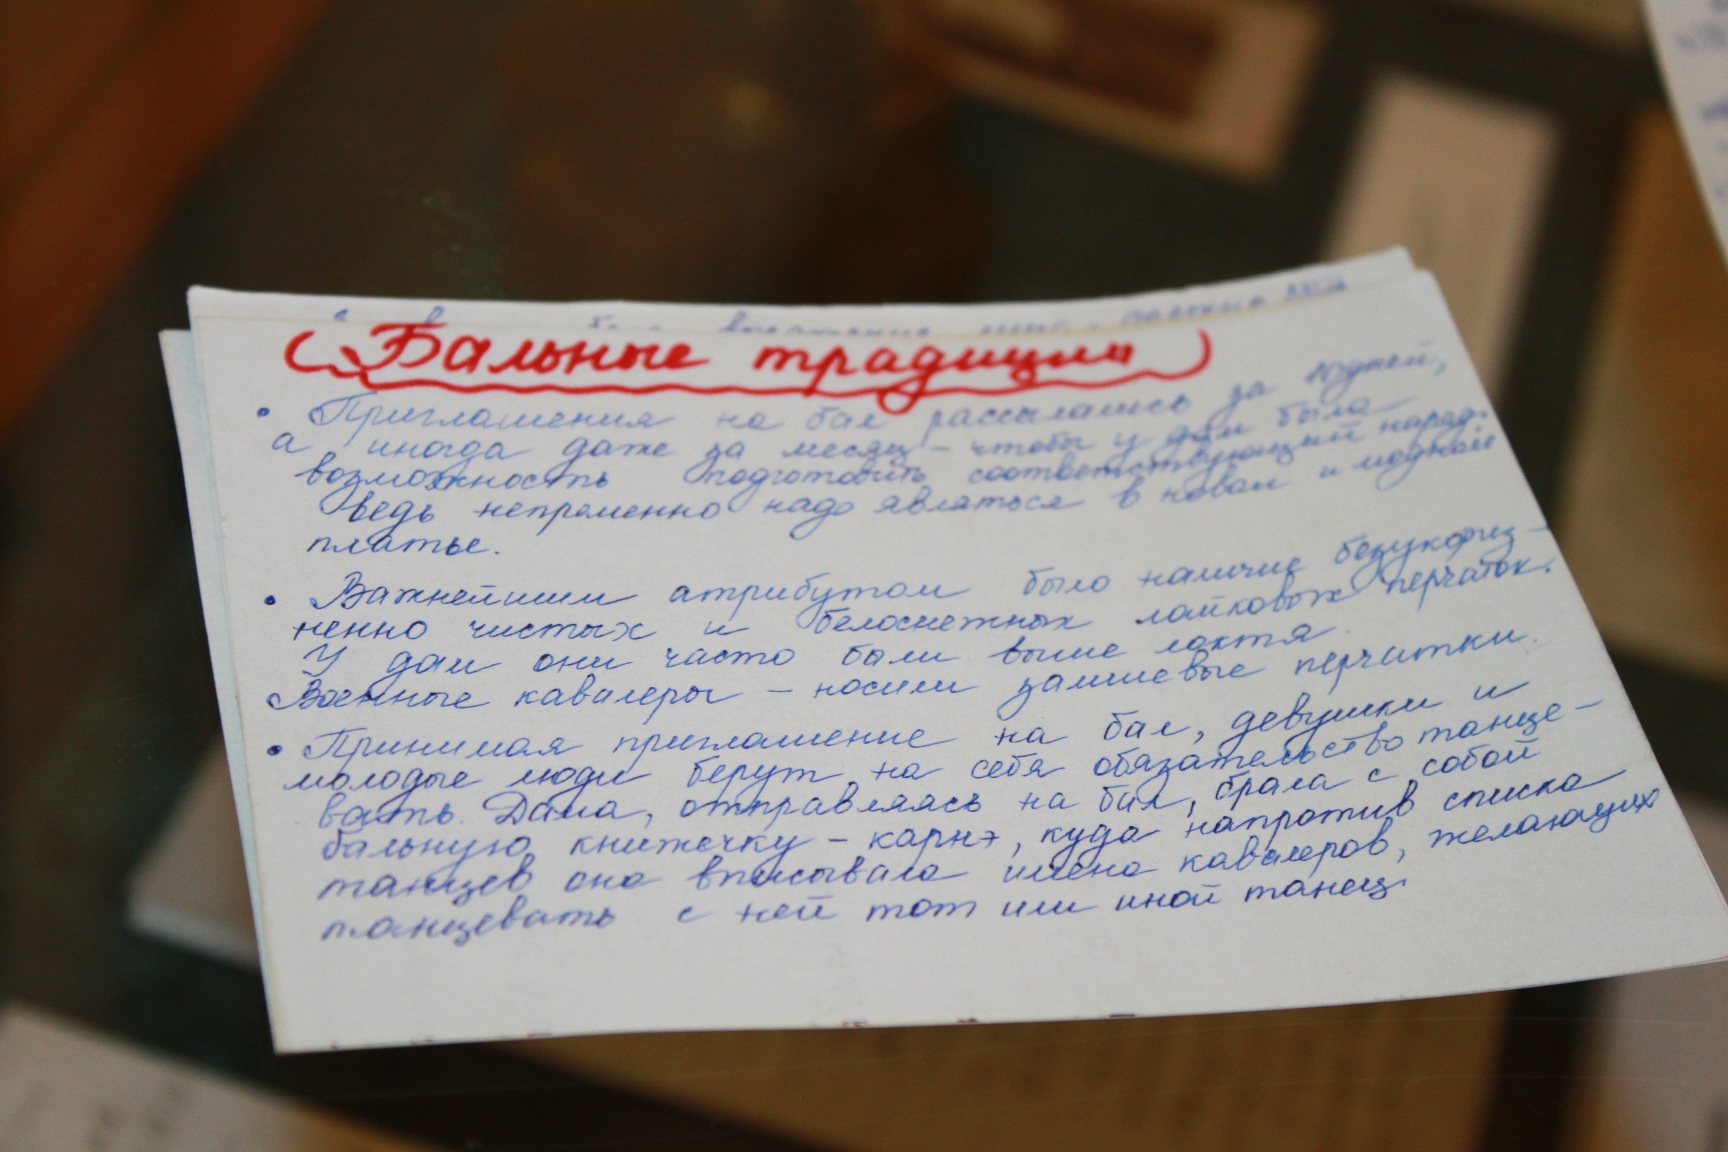 Бальные традиции
• Приглашения на бал рассылались за 10 дней,
а иногда даже за месяц – чтобы у дам была
возможность подготовить соответствующий наряд.
Ведь непременно надо являться в новом и модном
платье.
• Важнейшим атрибутом было наличие безукориз-
ненно чистых и белоснежных лайковых перчаток.
У дам они часто были выше локтя.
Военные кавалеры – носили замшевые перчатки.
• Принимая приглашение на бал, девушки и
молодые люди берут на себя обязательство танце-
вать. Дама, отправляясь на бал, брала с собой
бальную книжечку – карнэ, куда напротив списка
танцев она вписывала имена кавалеров, желающих
танцевать с ней тот или иной танец.